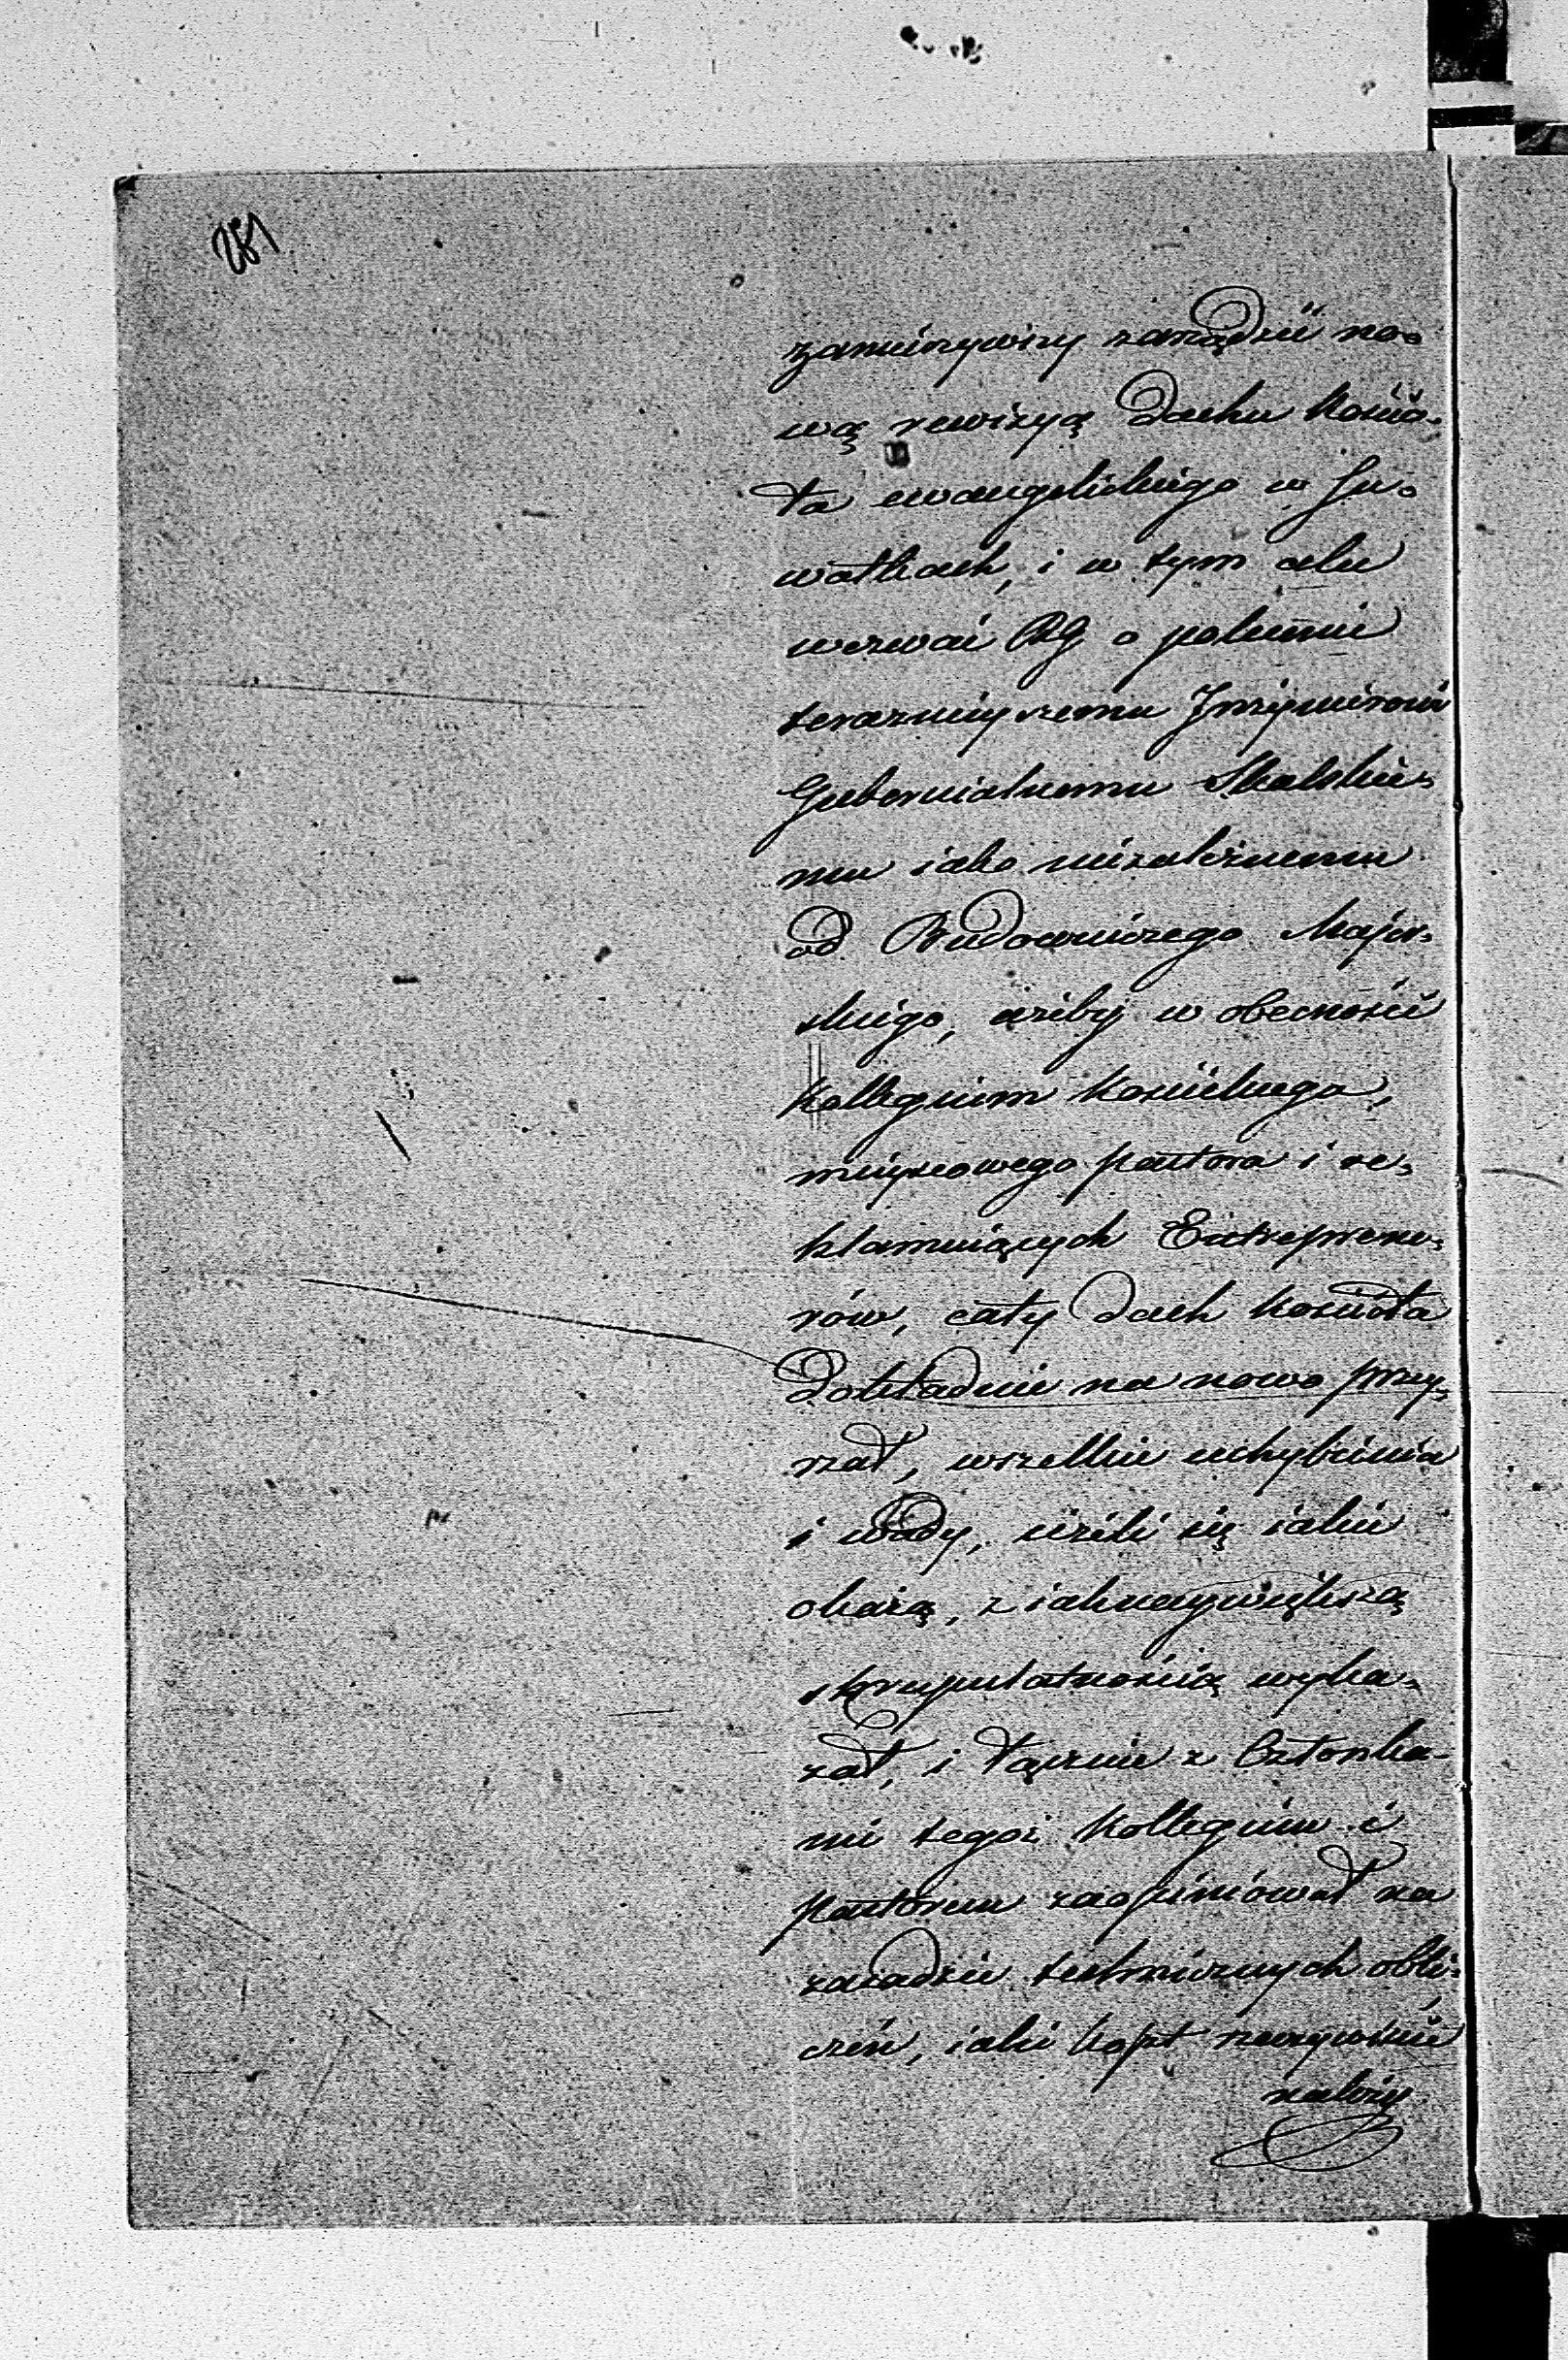 281
zamierzywszy zarządzić no-
wą rewizyą dachu kościo-
ła ewangelickiego w Su-
wałkach, i w tym celu
wezwać RG o polecenie
teraznieyszemu Inżynierowi
Gubernialnemu Skalskie-
mu iako niezależnemu
od Budowniczego Majer-
skiego, ażeby w obecności
Kollegium kościelnego,
mieyscowego pastora i re-
klamuiących Entreprene-
rów, cały dach kościoła
dokładnie na nowo przey-
rzał, wszelkie uchybienia
i wady, ieżeli się iakie
okażą, z iaknaywiększą
skrupulatnością wyka-
zał, i łącznie z Członka-
mi tegoż Kollegium i
pastorem zaopiniował na
zasadzie technicznych obli-
czeń, iaki koszt rzeczywiście
należy